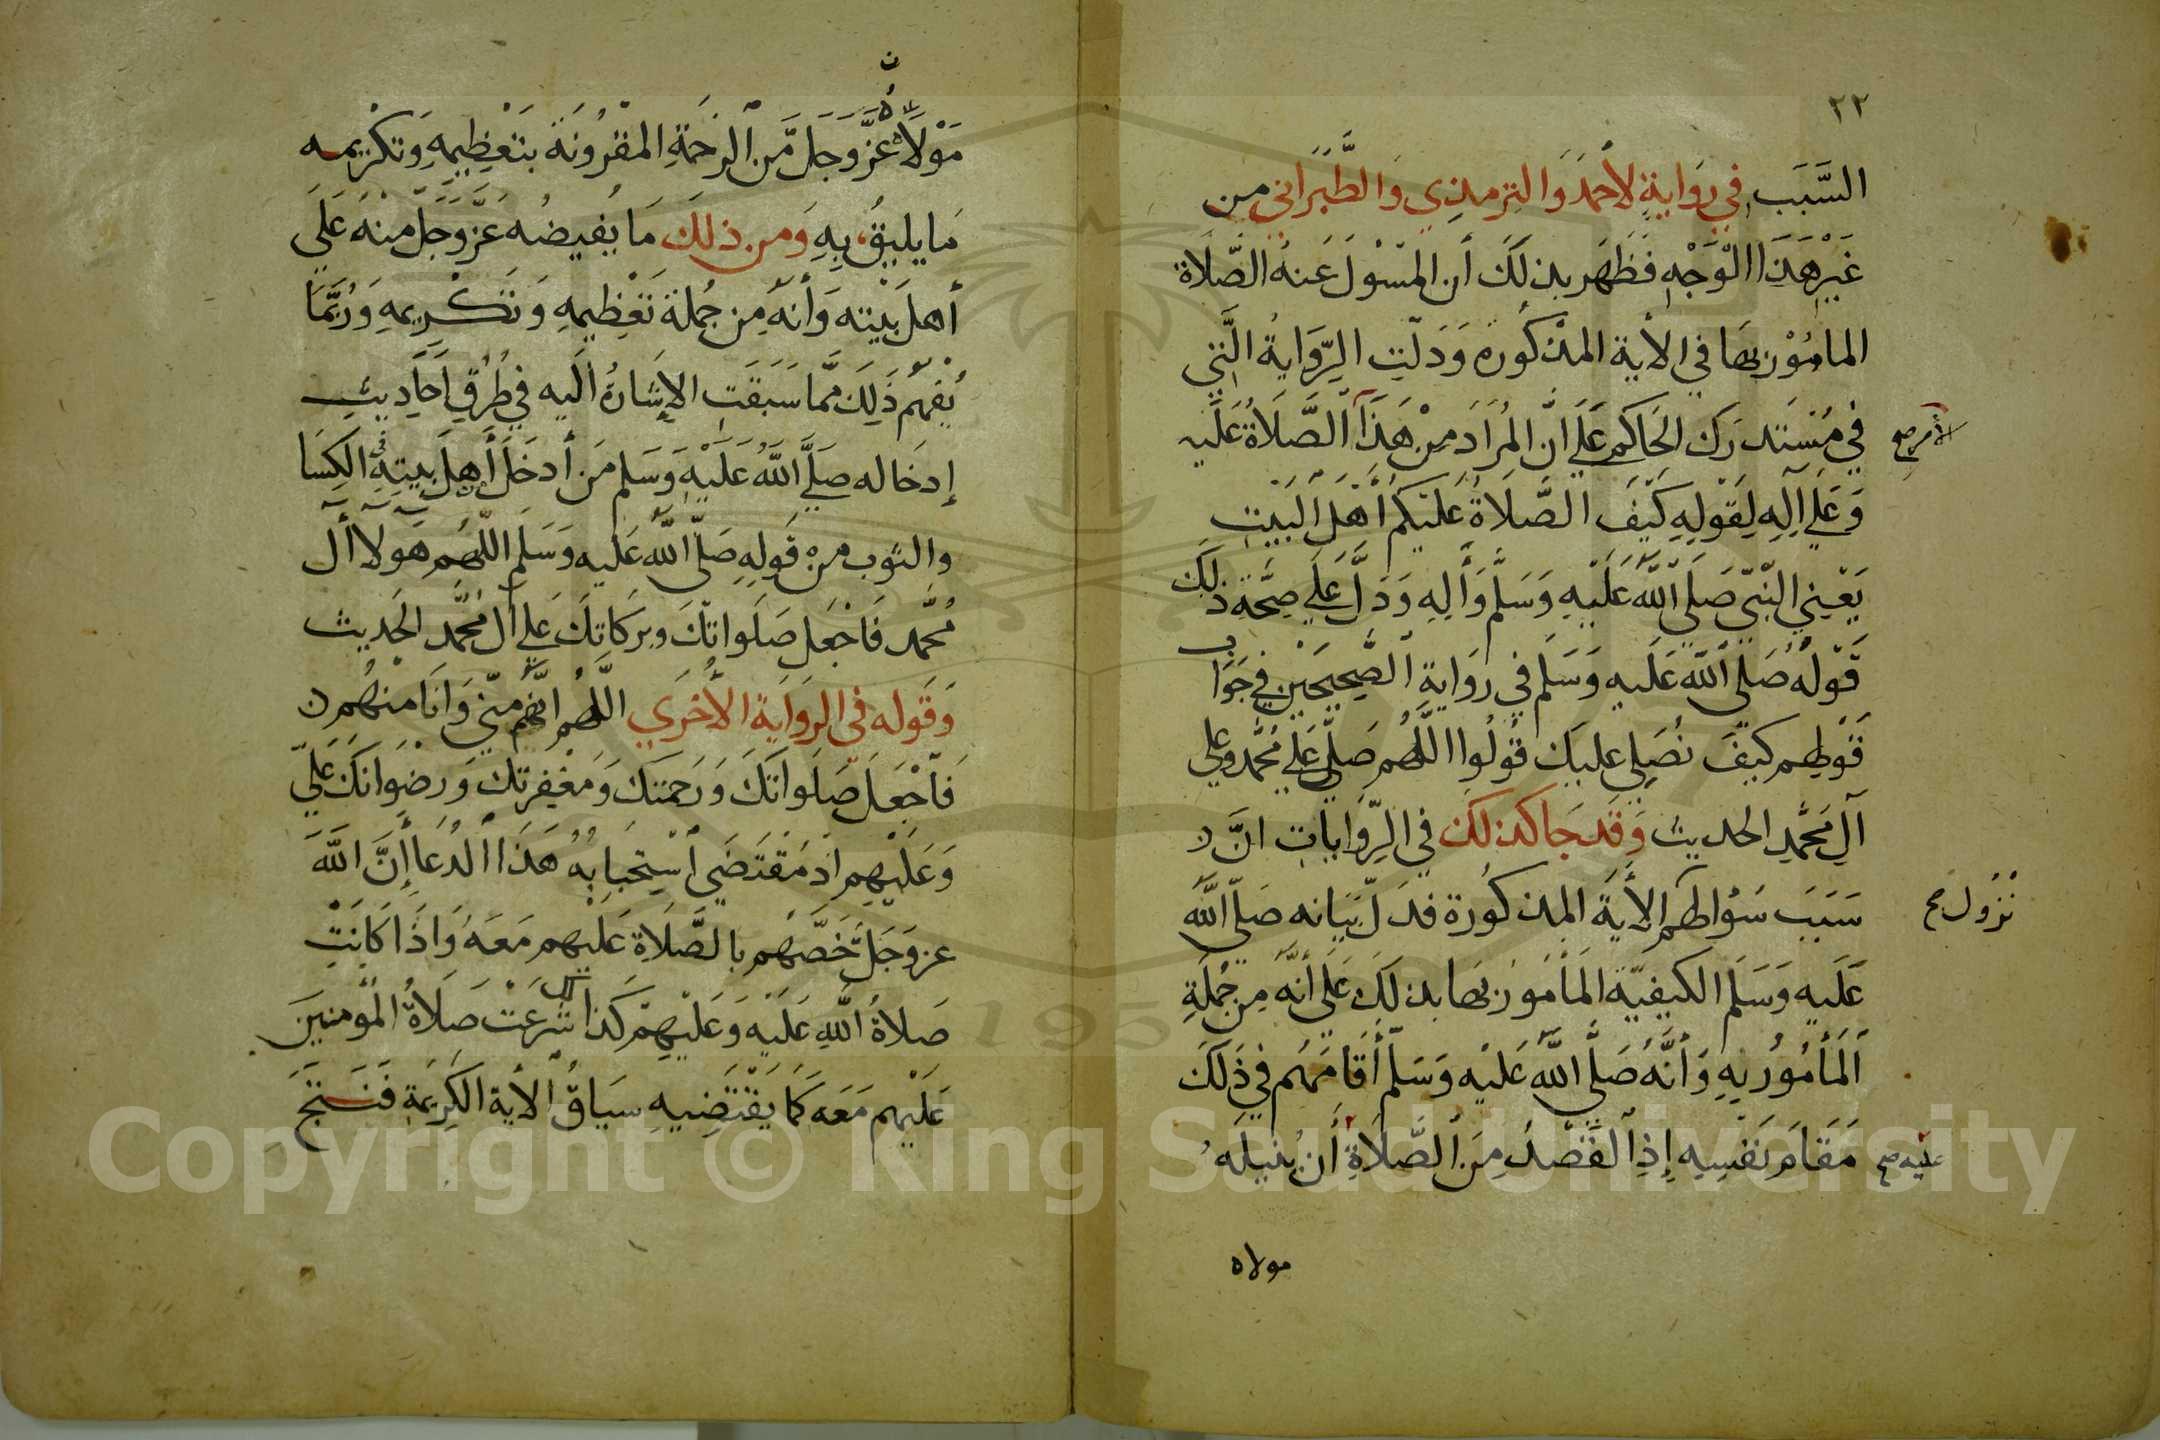 ٢٢
السَّبَب في رواية لأحمد والترمذي والطبراني من
غير هذا الوجه فظهر بذلك أن المسؤل عنه الصلاة
المامور بها في الاية المذكوره ودلت الرواية التي
في مستدرك الحاكم على ان المراد من هذا الصلاة عليه
وعلى اله لقوله كيف الصلاة عليكم أهل البيت
يعني النبي صلى الله عليه وسلم وأله ودل على صحة ذلك
قوله صلى الله عليه وسلم في رواية الصحيحين في جواب
قولهم كيف نصلي عليك قولوا اللهم صلي على محمد وعلى
آل محمد الحديث وقد جا كذلك في الروايات ان
سبب سؤالهم الأية المذكورة فدل بيانه صلى الله
نزول صح
عليه وسلم الكيفية المأمور بها بذلك على أنه من جملة
المأمور به وأنه صلى الله عليه وسلم أقامهم في ذلك
مقام نفسه إذ القصد من الصلاة أن ينيله
عليه صح
مولاه
مولاه عز وجل من الرحمة المقرونة بتعظيمه وتكريمه
ما يليق به ومن ذلك ما يفيضه عز وجل منه على
أهل بيته وأنه من جملة تعظيمه وتكريمه وربما
يفهم ذلك مما سبقت الإشارة اليه في طرق احاديث
إدخاله صلى الله عليه وسلم من أدخل أهل بيته في الكسا
والثوب من قوله صلى الله عليه وسلم اللهم هولا أل
محمد فاجعل صلواتك وبركاتك على أل محمد الحديث
وقوله في الرواية الأخرى اللهم انهم مني وانا منهم
فاجعل صلواتك ورحمتك ومغفرتك ورضوانك علي
وعليهم اذ مقتضى استجابه هذا الدعا إن الله
عز وجل خصهم بالصلاة عليهم معه واذا كانت
صلاة الله عليه وعليهم كذا شرعت صلاة المؤمنين
عليهم معه كما يقتضيه سياق الأية الكريمة فنستنتج
Copyright © King Saud University
195